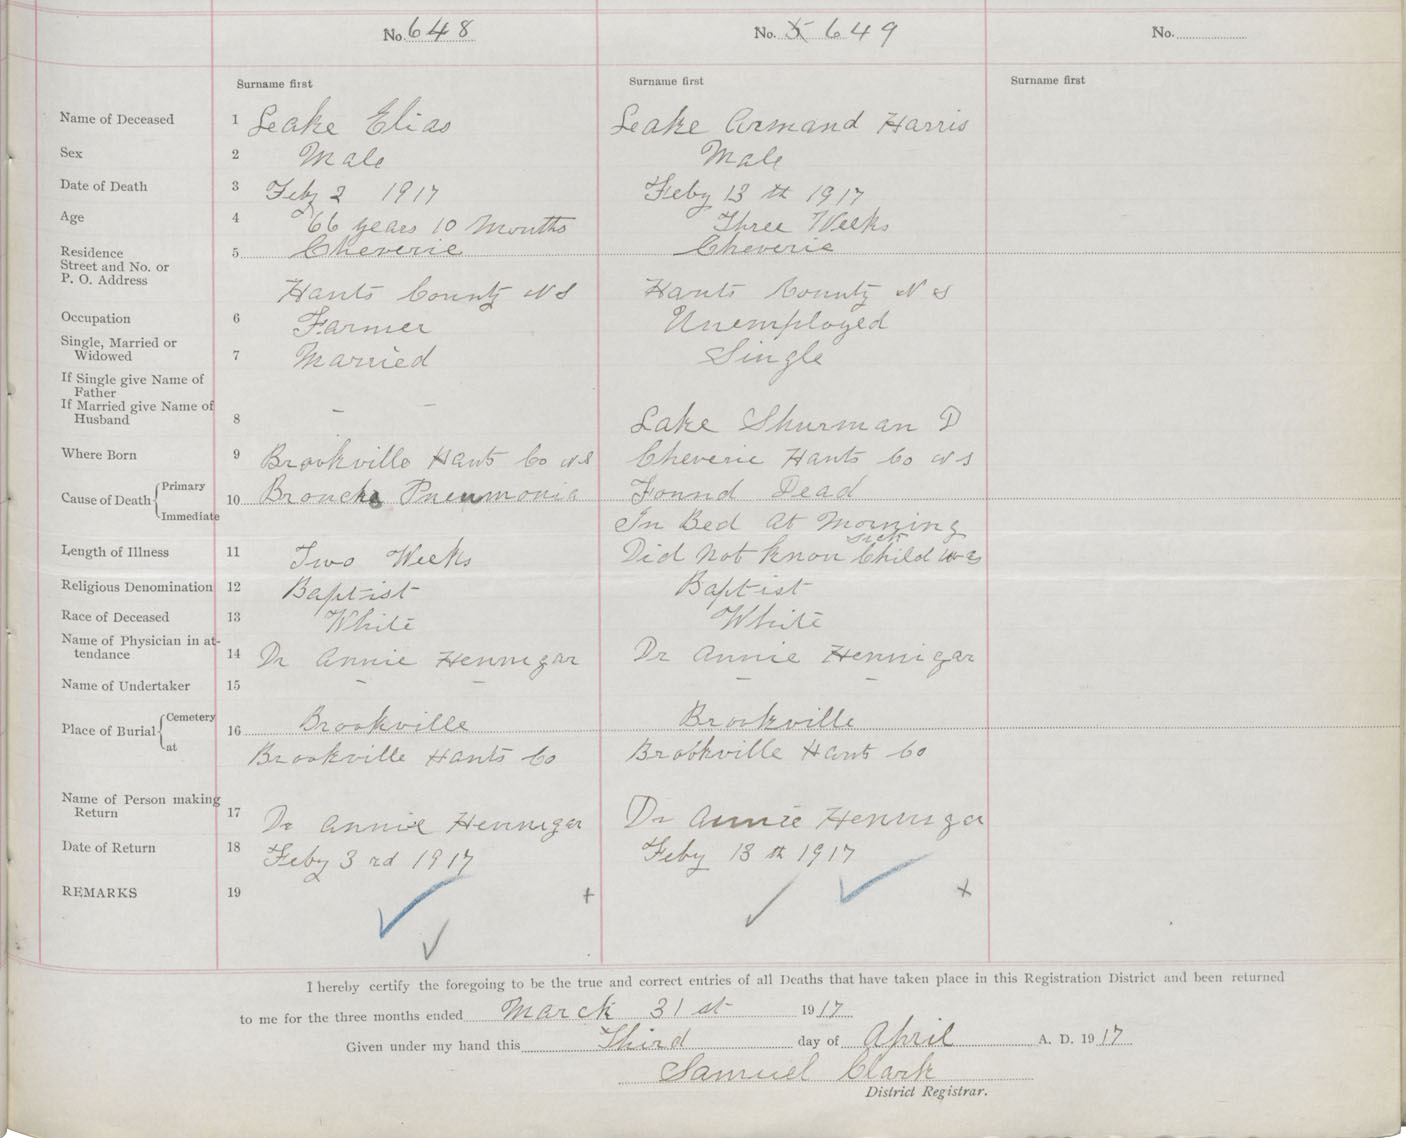 No. 648 No. 5 649 No.
Surname first Surname first Surname first
Name of Deceased 1 Leake Elias Leake Armand Harris
Sex 2 Male Male
Date of Death 3 Feby 2 1917 Feby 13 th 1917
Age 4 66 years 10 Months Three Weeks
Residence 5 Cheverie Cheverie
Street and No. or
P. O. Address Hants County N S Hants County N S
Occupation 6 Farmer Unemployed
Single, Married or
Widowed 7 Married Single
If Single give Name of
Father
If Married give Name of
Husband 8 - - Lake Shurman D
Where Born 9 Brookville Hants Co N S Cheverie Hants Co N S
Cause of Death { Primary 10 Broncho Pneumonia Found Dead
Immediate In Bed at Morning
Length of Illness 11 Two Weeks Did not know sick Child was
Religious Denomination 12 Baptist Baptist
Race of Deceased 13 White White
Name of Physician in at-
tendance 14 Dr Annie Hennigar Dr Annie Hennigar
Name of Undertaker 15 - - - -
Place of Burial { Cemetery 16 Brookville Brookville
at Brookville Hants Co Brookville Hants Co
Name of Person making
Return 17 Dr Annie Hennigar Dr Annie Hennigar
Date of Return 18 Feby 3 rd 1917 Feby 13 th 1917
REMARKS 19 + x
I hereby certify the foregoing to be the true and correct entries of all Deaths that have taken place in this Registration District and been returned
to me for the three months ended March 31 st 1917
Given under my hand this Third day of April A. D. 1917
Samuel Clark
District Registrar.